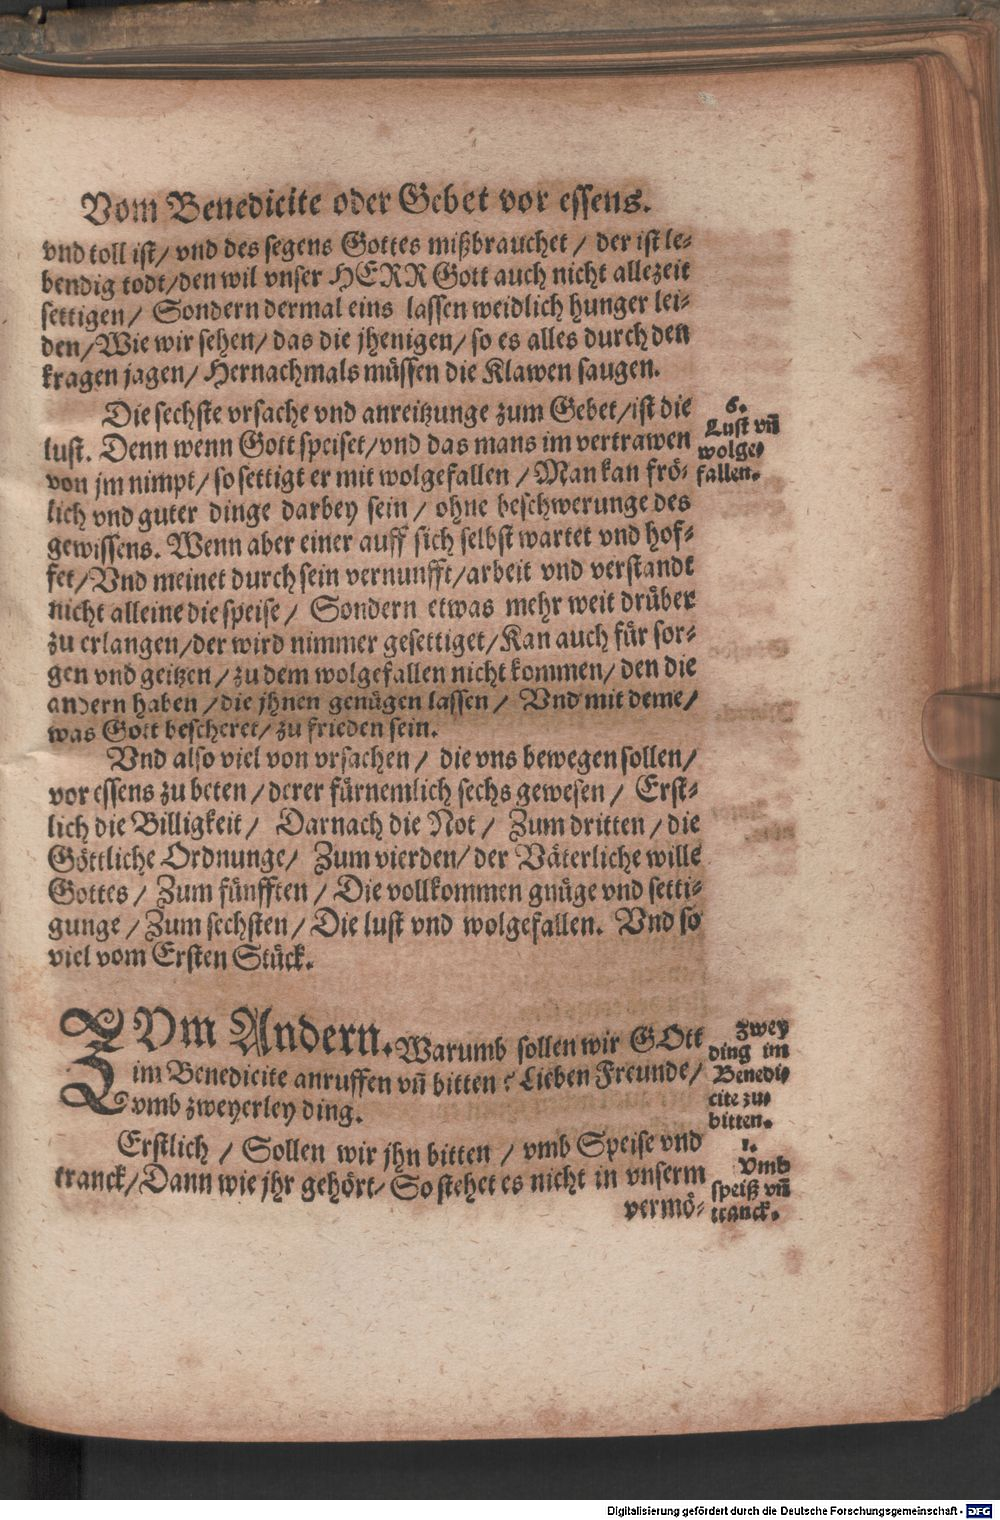 Vom Benedicite oder Gebet vor essens.
vnd toll ist/ vnd des segens Gottes mißbrauchet / der ist le-
bendig todt/den wil vnser HERR Gott auch nicht allezeit
settigen/ Sondern dermal eins lassen weidlich hunger lei-
den/Wie wir sehen/ das die jhenigen/ so es alles durch den
kragen jagen/ Hernachmals müssen die Klawen saugen.
Die sechste vrsache vnd anreitzunge zum Gebet/ist die
lust. Denn wenn Gott speiset/vnd das mans im vertrawen
von jm nimpt/ so settigt er mit wolgefallen / Man kan frö-
lich vnd guter dinge darbey sein / ohne beschwerunge des
gewissens. Wenn aber einer auff sich selbst wartet vnd hof-
fet/Vnd meinet durch sein vernunfft/arbeit vnd verstandt
nicht alleine die speise / Sondern etwas mehr weit drüber
zu erlangen/der wird nimmer gesettiget/Kan auch für sor-
gen vnd geitzen / zu dem wolgefallen nicht kommen/ den die
andern haben /die jhnen genügen lassen / Vnd mit deme/
was Gott bescheret/ zu frieden sein.
6.
Lust vñ
wolge-
fallen.
Vnd also viel von vrsachen / die vns bewegen sollen/
vor essens zu beten / derer fürnemlich sechs gewesen / Erst-
lich die Billigkeit / Darnach die Not / Zum dritten / die
Göttliche Ordnunge/ Zum vierden/ der Väterliche wille
Gottes / Zum fünfften / Die vollkommen gnüge vnd setti-
gunge / Zum sechsten / Die lust vnd wolgefallen. Vnd so
viel vom Ersten Stück.
ZVm Andern. Warumb sollen wir GOtt
im Benedicite anruffen vñ bitten? Lieben Freunde/
vmb zweyerley ding.
Zwey
ding im
Benedi-
cite zu-
bitten.
Erstlich / Sollen wir jhn bitten / vmb Speise vnd
tranck/Dann wie jhr gehört/ So stehet es nicht in vnserm
vermö-
1.
Vmb
speiß vñ
tranck.
Digitalisierung gefördert durch die Deutsche Forschungsgemeinschaft - DFG